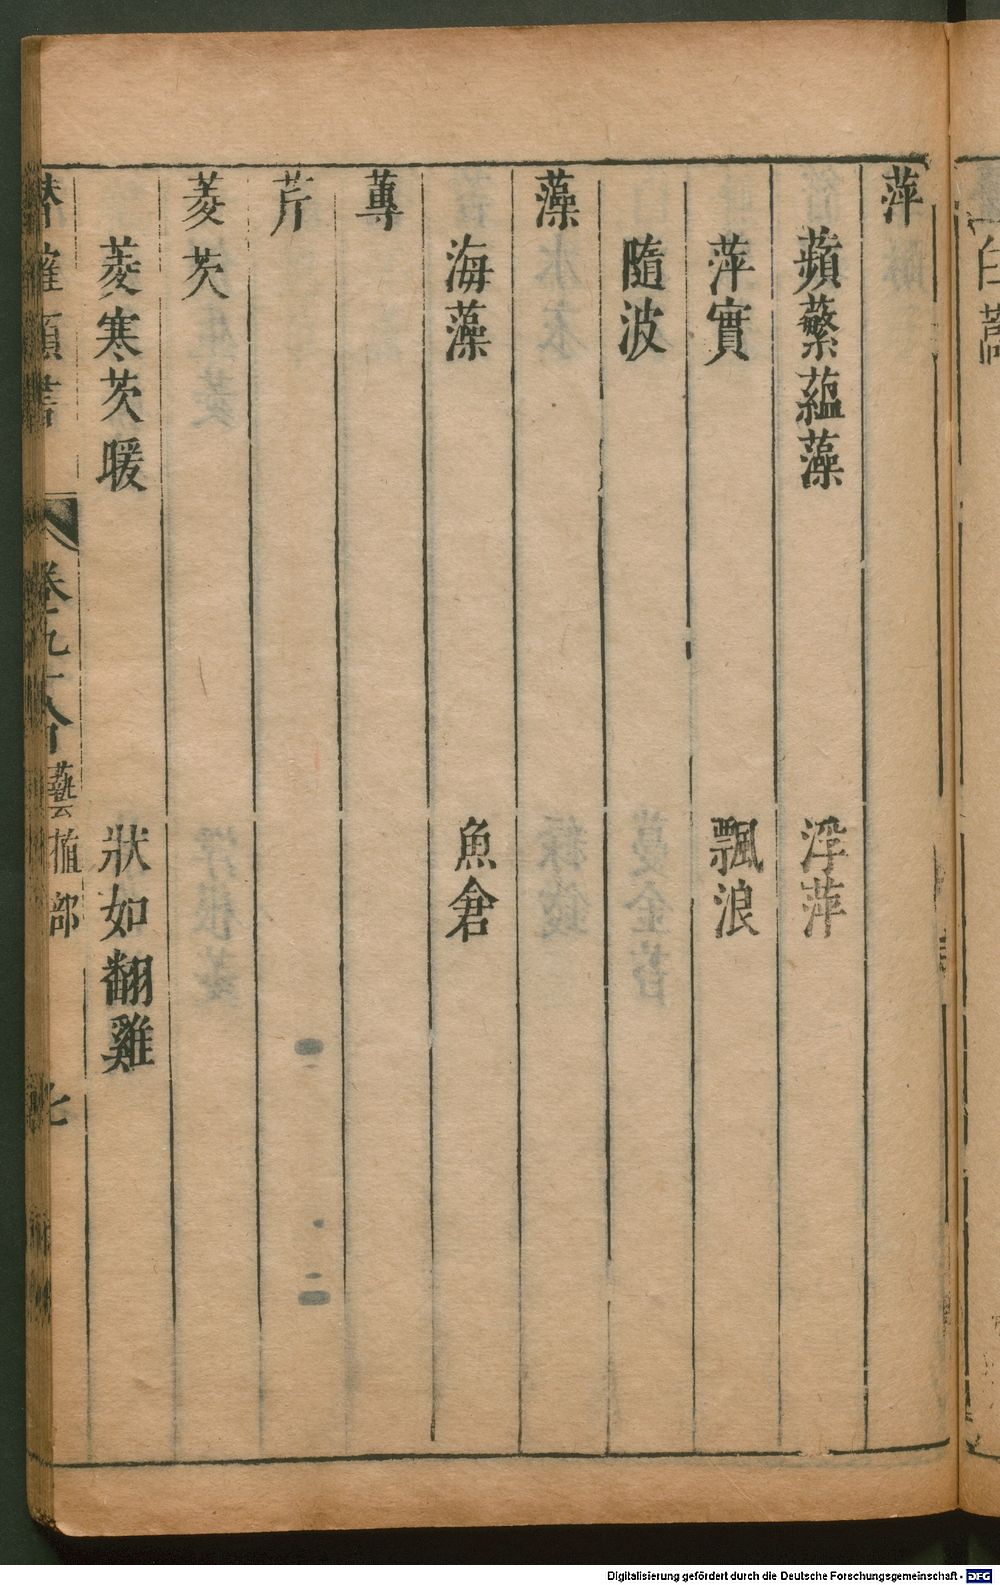 萍
蘋蘩蕰藻　浮萍
萍實　飄浪
隨波
藻
海藻　魚倉
蓴
芹
菱芡
菱寒芡暖　狀如翻雞
潛確類書　卷九十八　藝植部　七
白蒿
Digitalisierung gefördert durch die Deutsche Forschungsgemeinschaft - DFG